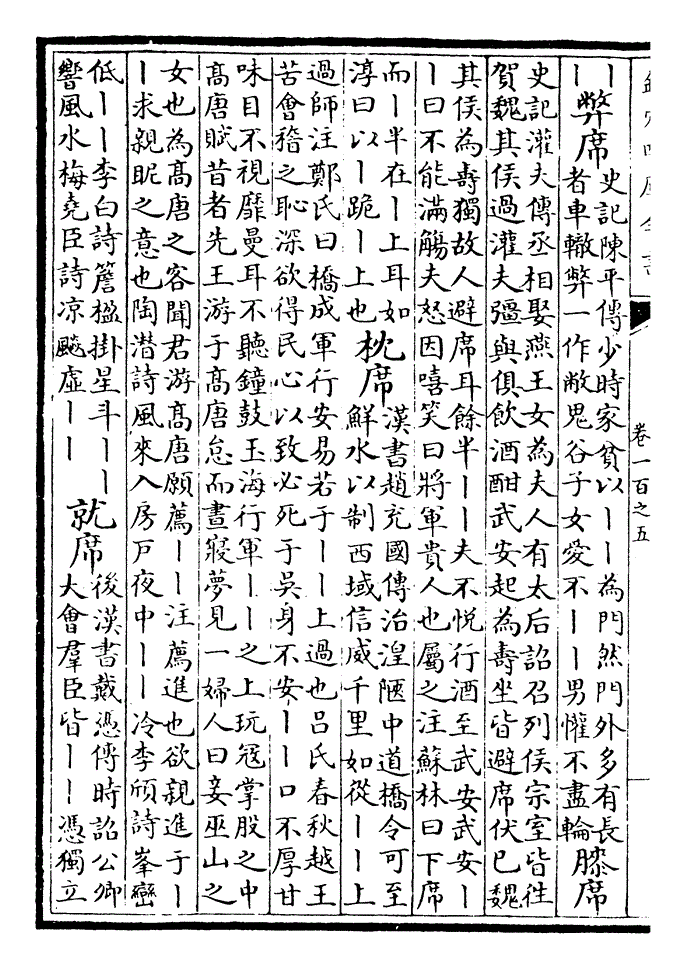 欽定四庫全書
卷一百之五
丨
丨
弊席
史記陳平傳少時家貧以丨丨為門然門外多有長
者車轍弊一作敝鬼谷子女愛不丨丨男懽不盡輪
膝席
史記灌夫傳丞相娶燕王女為夫人有太后詔召列侯宗室皆徃
賀魏其侯過灌夫彊與俱飲酒酣武安起為壽坐皆避席伏已魏
其侯為壽獨故人避席耳餘半丨丨夫不悅行酒至武安武安丨
丨曰不能滿觴夫怒因嘻笑曰將軍貴人也屬之注蘇林曰下席
而丨半在丨上耳如
淳曰以丨跪丨上也
枕席
漢書趙充國傳治湟陿中道橋令可至
鮮水以制西域信威千里如從丨丨上
過師注鄭氏曰橋成軍行安易若于丨丨上過也呂氏春秋越王
苦會稽之恥深欲得民心以致必死于吳身不安丨丨口不厚甘
味目不視靡曼耳不聽鐘鼓玉海行軍丨丨之上玩冦掌股之中
髙唐賦昔者先王游于髙唐怠而晝寢夢見一婦人曰妾巫山之
女也為髙唐之客聞君游髙唐願薦丨丨注薦進也欲親進于丨
丨求親昵之意也陶潛詩風來入房戸夜中丨丨冷李頎詩峯巒
低丨丨李白詩簷楹掛星斗丨丨
響風水梅堯臣詩凉飈虛丨丨
就席
後漢書戴憑傳時詔公卿
大會羣臣皆丨丨憑獨立